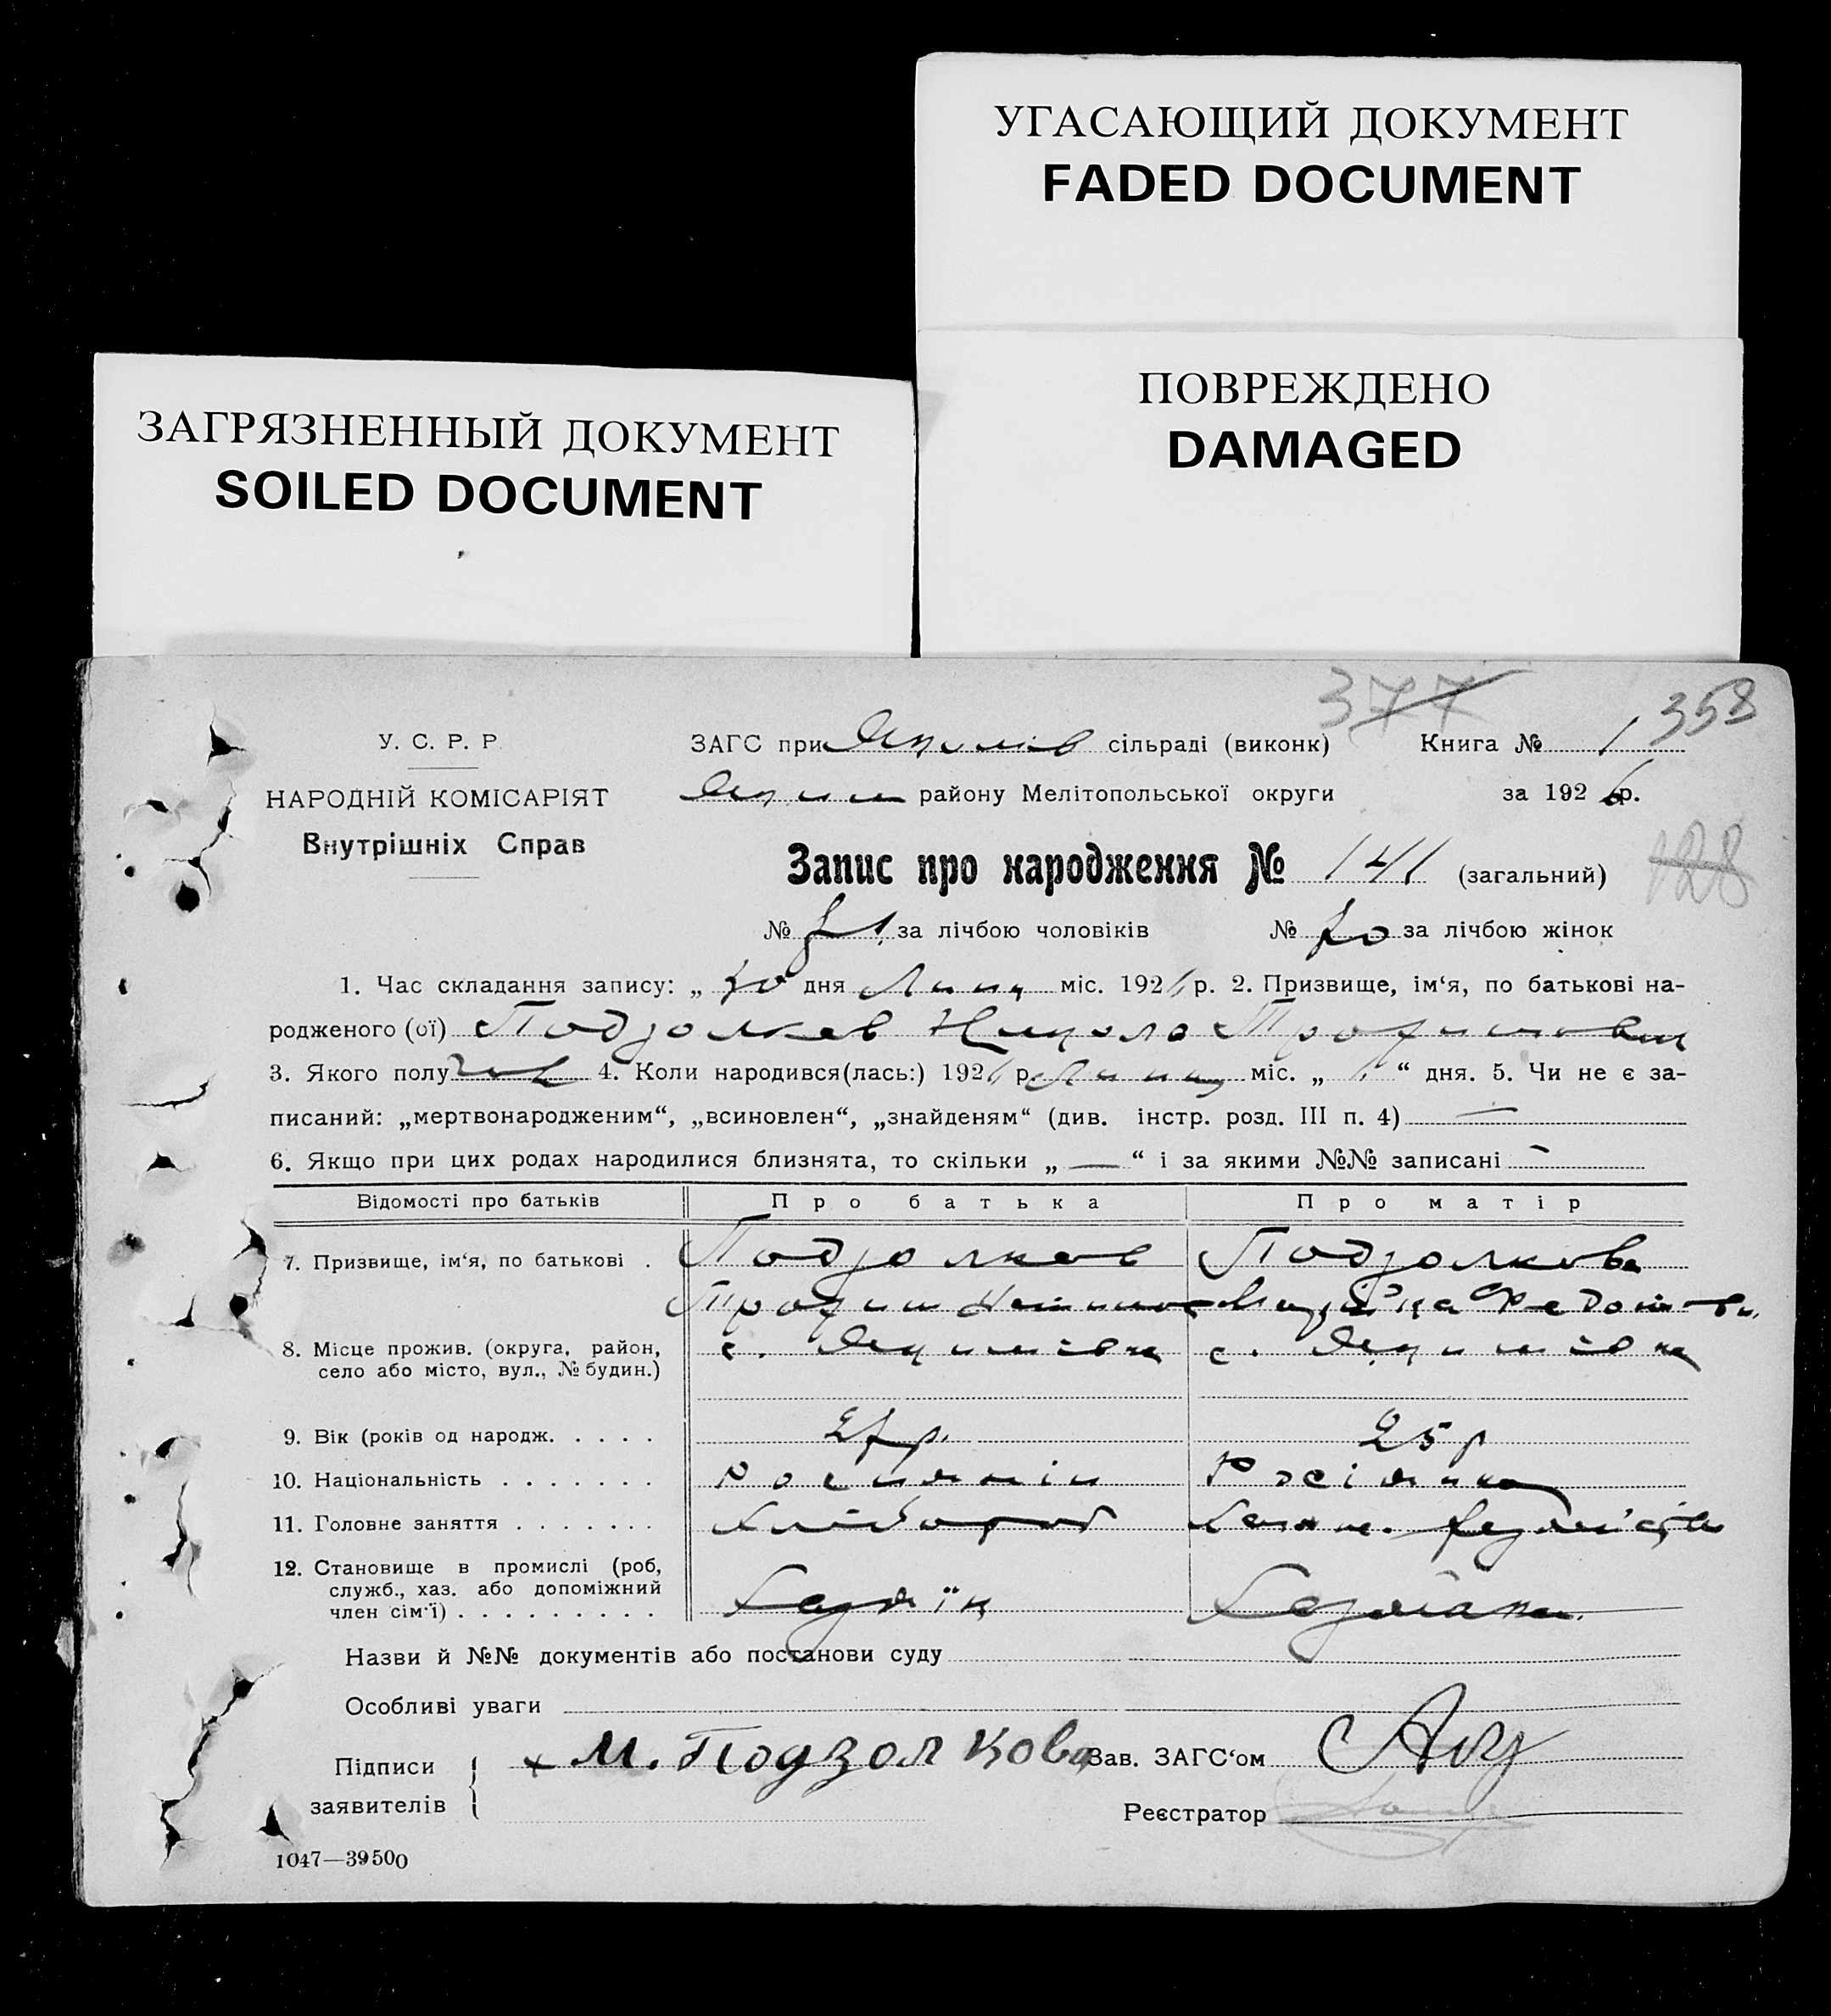 УГАСАЮЩИЙ ДОКУМЕНТ
FADED DOCUMENT
ПОВРЕЖДЕНО
DAMAGED
ЗАГРЯЗНЕННЫЙ ДОКУМЕНТ
SOILED DOCUMENT
377 358
У. С. Р. Р.
НАРОДНІЙ КОМІСАРІЯТ
Внутрішніх Справ
ЗАГС при Якимів сільраді (виконк) Книга № 1
Яким району Мелітопольської округи за 1926 р.
Запис про народження № 141 (загальний) 128
№ 71 за лічбою чоловіків № 70 за лічбою жінок
1. Час складання запису: „ 30 дня Липц міс. 1926 р. 2. Призвище, ім‘я, по батькові на-
родженого (ої) Подзолков Микола Трофимович
3. Якого полу чол 4. Коли народився(лась:) 1926 р. Липц міс. „ “ дня. 5. Чи не є за-
писаний: „мертвонародженим“, „всиновлен“, „знайденям“ (див. інстр. розд. III п. 4) —
6. Якщо при цих родах народилися близнята, то скільки „ — “ і за якими №№ записані —
Відомості про батьків Про батька Про матір
7. Призвище, ім‘я, по батькові . Подзолков Подзолкова
Трофим
8. Місце прожив. (округа, район, с. Якимівка с. Якимівка
село або місто, вул., № будин.)
9. Вік (років од народж. . . . . 27 р. 25 р
10. Національність . . . . . . . Росиянін Росіянка
11. Головне заняття . . . . . . . Хлібороб
12. Становище в промислі (роб,
служб., хаз. або допоміжний
член сім‘ї) . . . . . . . . . Хазяїн Хазяйка
Назви й №№ документів або постанови суду
Особливі уваги
Підписи + М. Подзолкова Зав. ЗАГС‘ом
заявителів Реєстратор
1047—39500